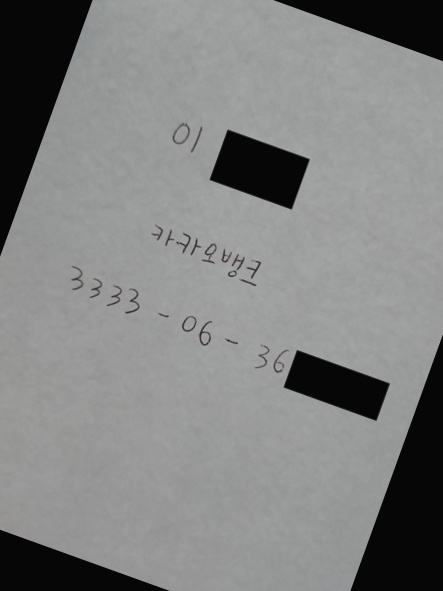 01
카카오뱅크
3333 - 06 - 36